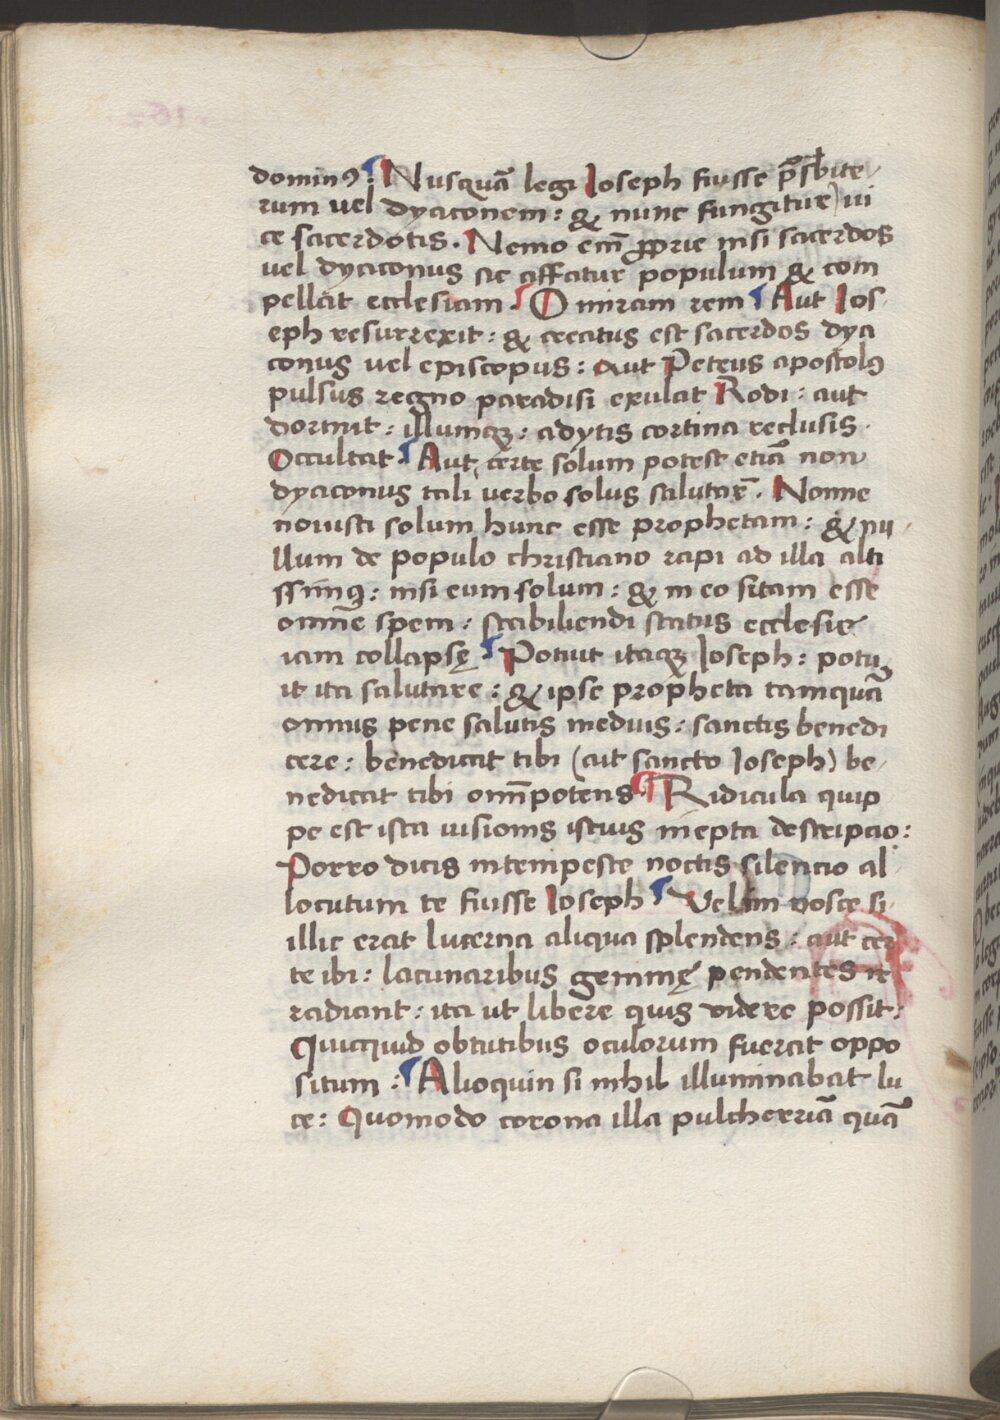 dominꝰ: Nusquā legi Ioseph fuisse p̄sbite-
rum uel dyaconem: & nunc fungitur) ui
ce sacerdotis. Nemo em̄ ꝓprie nisi sacerdos
uel dyaconus sic affatur populum & com
pellat ecclesiam. O miram rem Aut Ios
eph resurrexit: & creatus est sacerdos dya
conus uel episcopus: Aut Petrus apostolꝰ
pulsus regno paradisi exulat Rodi: aut
dormit: illumqꝫ: adytis cortina reclusis.
Occultat. Aut certe solum potest etiā non
dyaconus tali uerbo solus salutar̄. Nonne
nouisti solum hunc esse prophetam: & nu-
llum de populo christiano rapi ad illa alti
ssimꝰ: nisi eum solum: & in eo sitam esse
omnē spem: stabiliendi status ecclesię
iam collapsę Potuit itaqꝫ Ioseph: potu
it ita salutare: & ipse propheta tamquā
omnus pene salutis meduis: sanctis benedi
cere: benedicat tibi (ait sancto Ioseph) be-
nedicat tibi om̄potens. Ridicula quip
pe est ista uisionis istius inepta descripcio:
Porro dicis intempeste noctis silencio al
locutum te fuisse Ioseph Velim nosce si
illic erat lucerna aliqua splendens: aut cer
te ibi: lacunaribus gemmę pendentes ir
radiant: ita ut libere quis videre possit:
Quicquid obtutibus oculorum fuerat oppo
situm: Alioquin si nihil illuminabat lu
ce: Quomodo corona illa pulcherriā quā